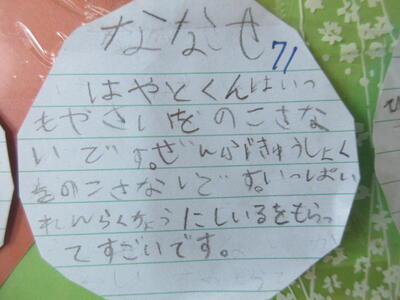 ななせ
71
はやとくんはいっ
もやさいをのこさな
いです。ぜんぶきゅうしょく
をのこさないです。いっぱい
れんらくちょうにしいるをもらっ
てすごいです。